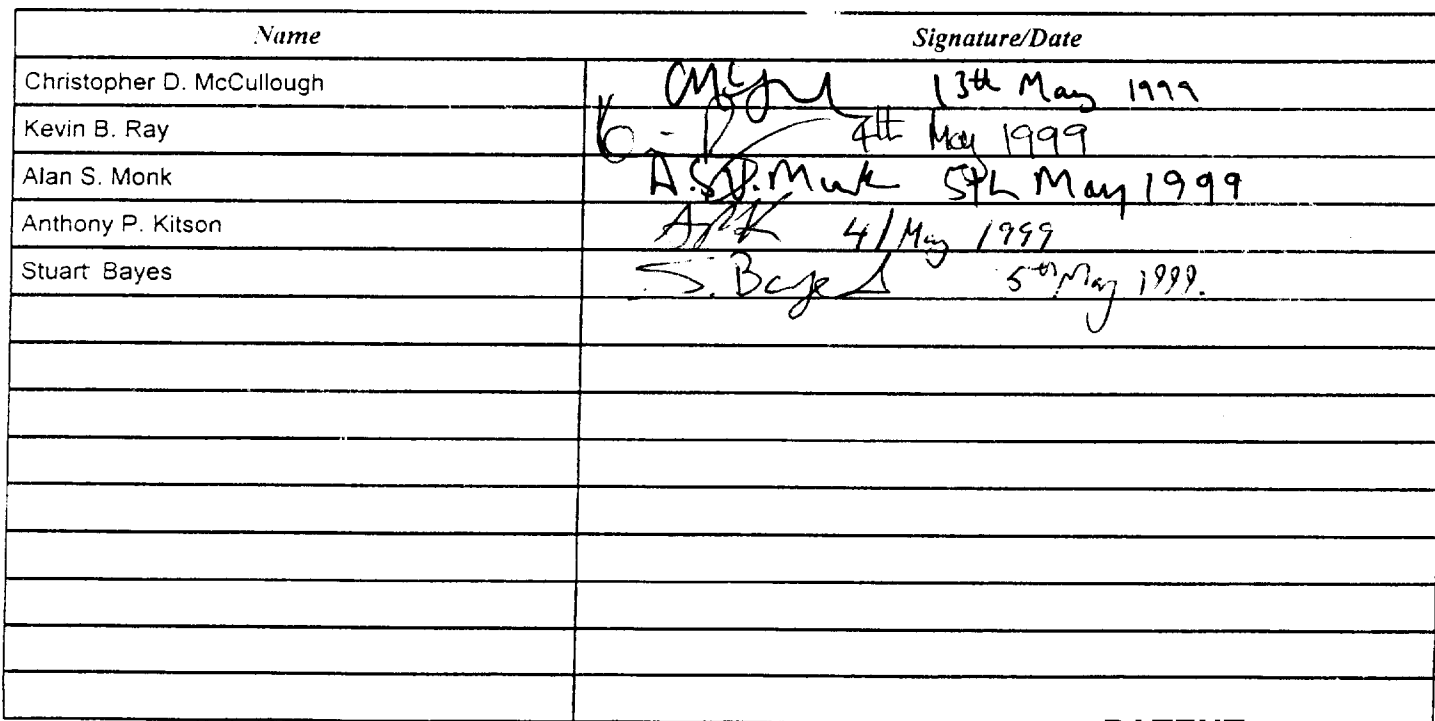 Name Signature/Date
Christopher D. McCullough 13th May 1999
Kevin B. Ray 4th May 1999
Alan S. Monk A.S.V.Monk 5th May 1999
Anthony P. Kitson APK 4/May 1999
Stuart Bayes S. Bayes 5th May 1999.